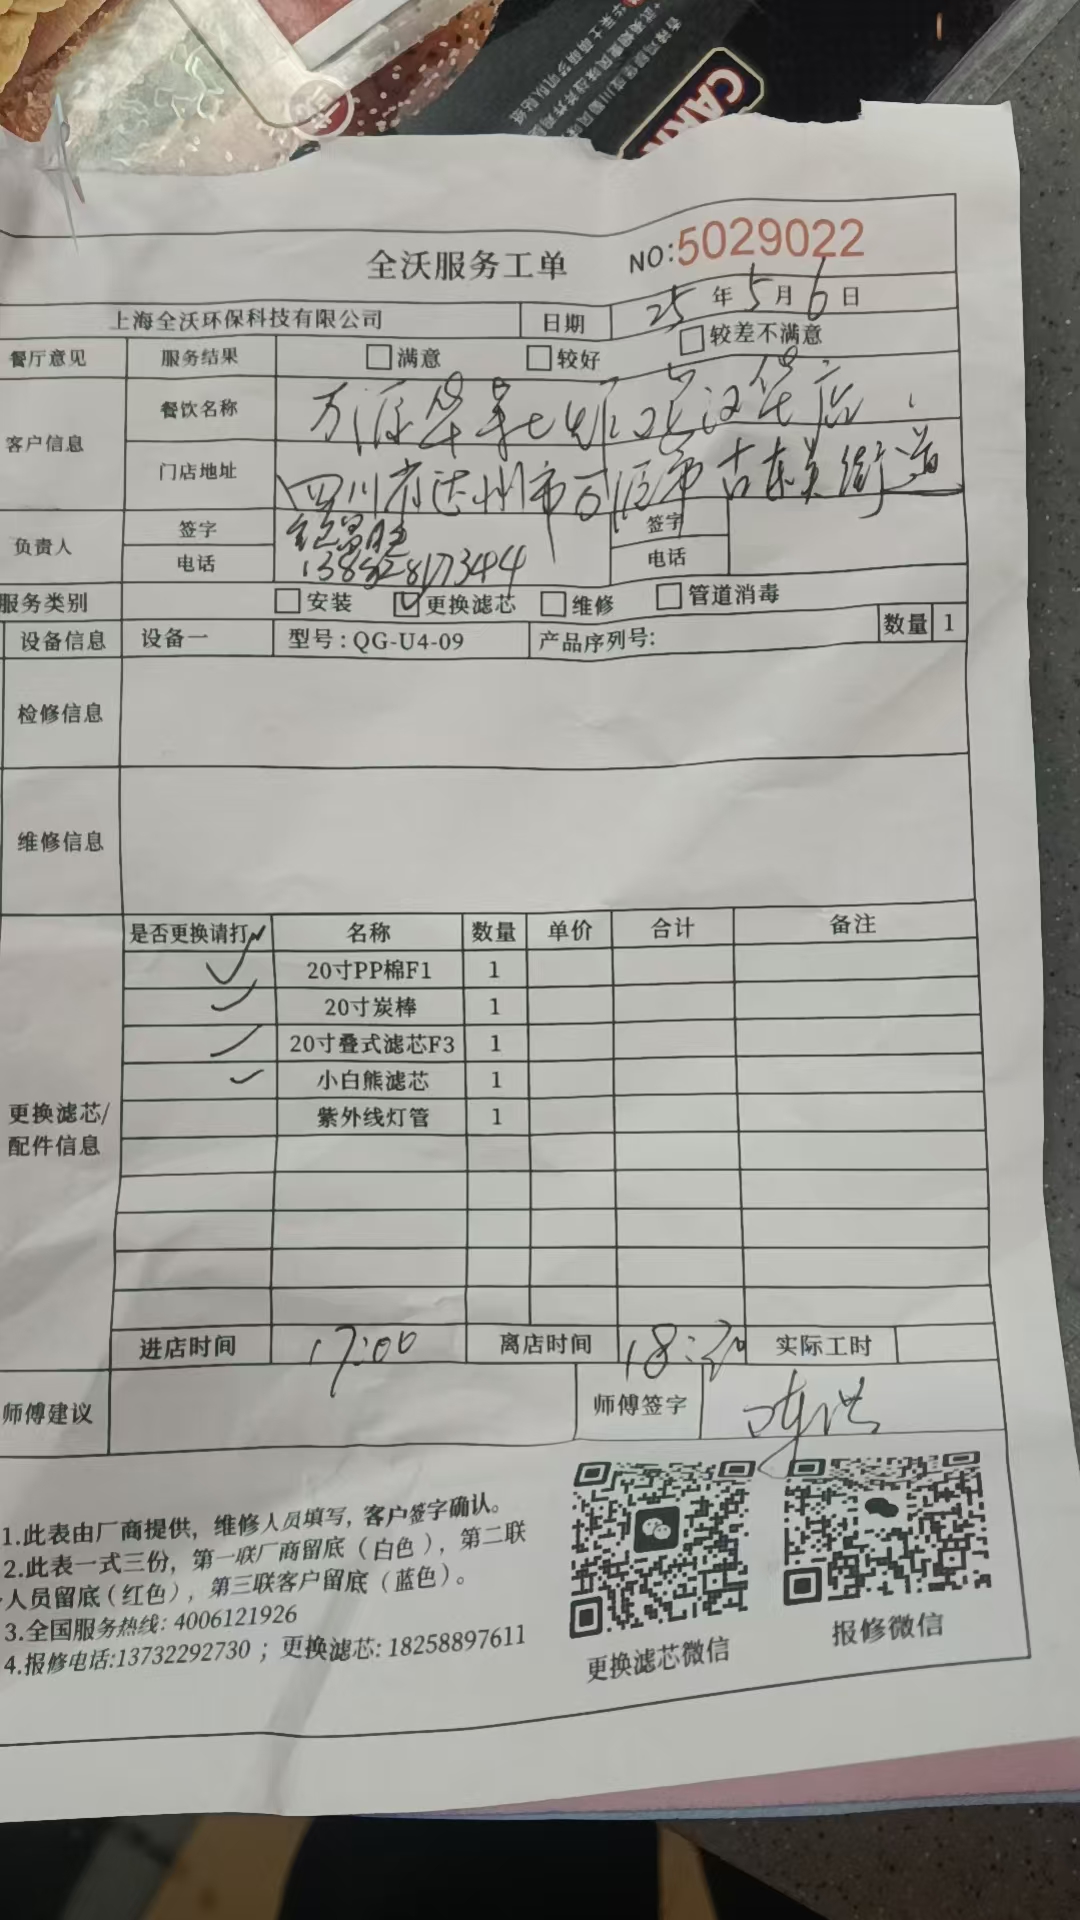 CARN
全沃服务工单
NO:5029022
上海全沃环保科技有限公司 日期 25年5月6日
餐厅意见 服务结果 满意 较好 较差不满意
客户信息 餐饮名称 万源华莱士 汉堡店
门店地址 四川省达州市万源市古东关街道
负责人 签字 签字
电话 电话
服务类别 安装 更换滤芯 维修 管道消毒
设备信息 设备一 型号:QG-U4-09 产品序列号: 数量 1
检修信息
维修信息
是否更换请打✓ 名称 数量 单价 合计 备注
✓ 20寸PP棉F1 1
✓ 20寸炭棒 1
✓ 20寸叠式滤芯F3 1
✓ 小白熊滤芯 1
紫外线灯管 1
更换滤芯/
配件信息
进店时间 17:00 离店时间 18:30 实际工时
师傅建议 师傅签字
1.此表由厂商提供，维修人员填写，客户签字确认。
2.此表一式三份，第一联厂商留底（白色），第二联
人员留底（红色），第三联客户留底（蓝色）。
3.全国服务热线: 4006121926
4.报修电话:13732292730；更换滤芯: 18258897611
更换滤芯微信
报修微信